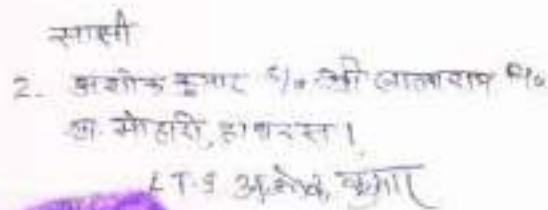 साक्षी
2. अशोक कुमार S/o श्री लालाराम R/o
ग्रा. मोहारी, हाथरस।
LT.I अशोक कुमार